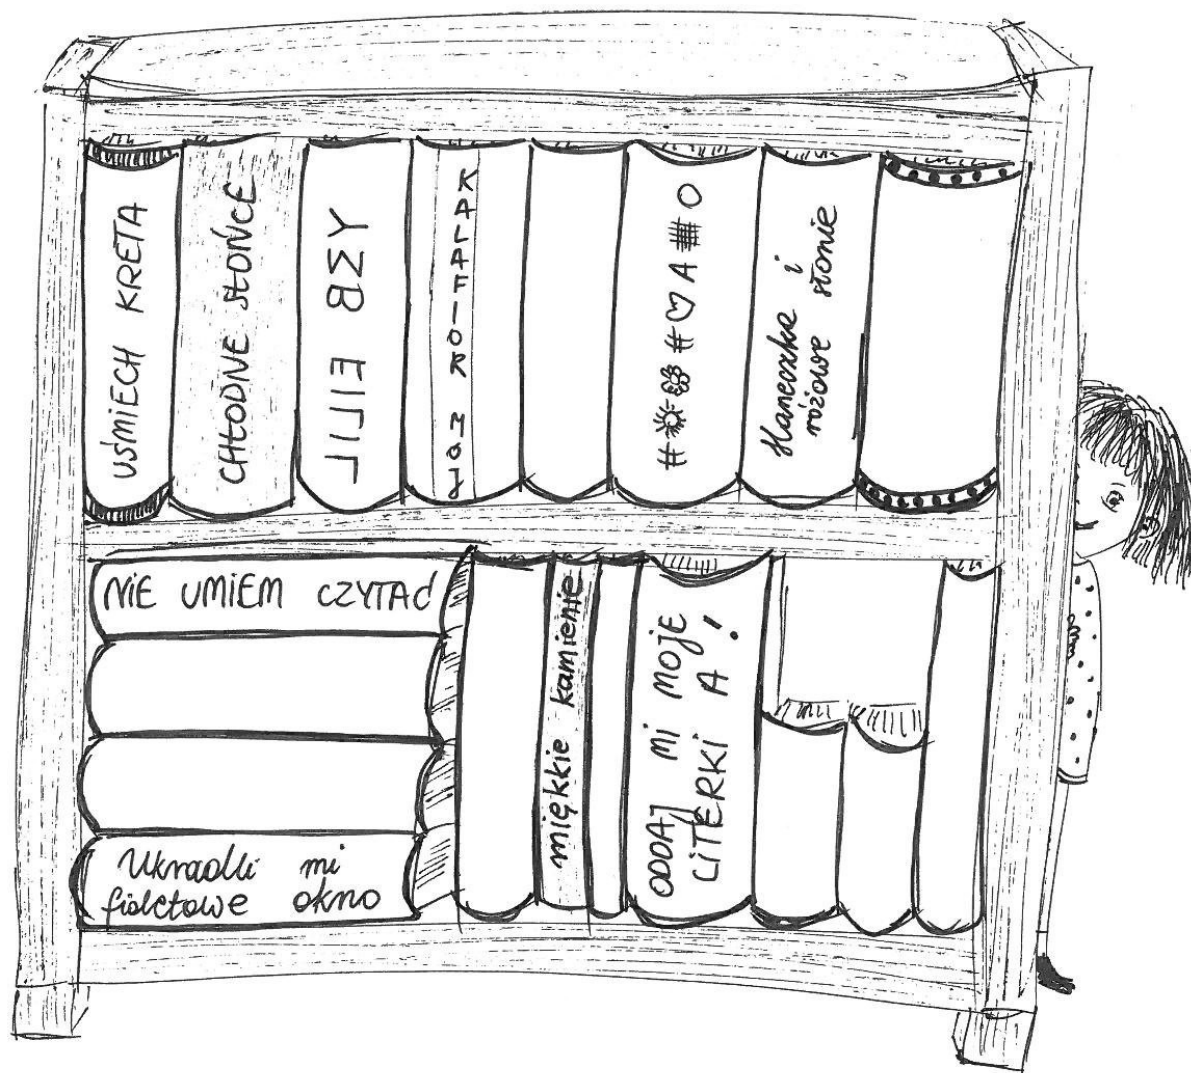 UŚMIECH KRETA
CHŁODNE SŁOŃCE
KALAFIOR MOJ
# ☼ ❀ # ♡ A # O
Haneczka i
różowe słonie
NIE UMIEM CZYTAĆ
Ukradli mi
fioletowe okno
miękkie kamienie
ODDAJ MI MOJE
LITERKI A!